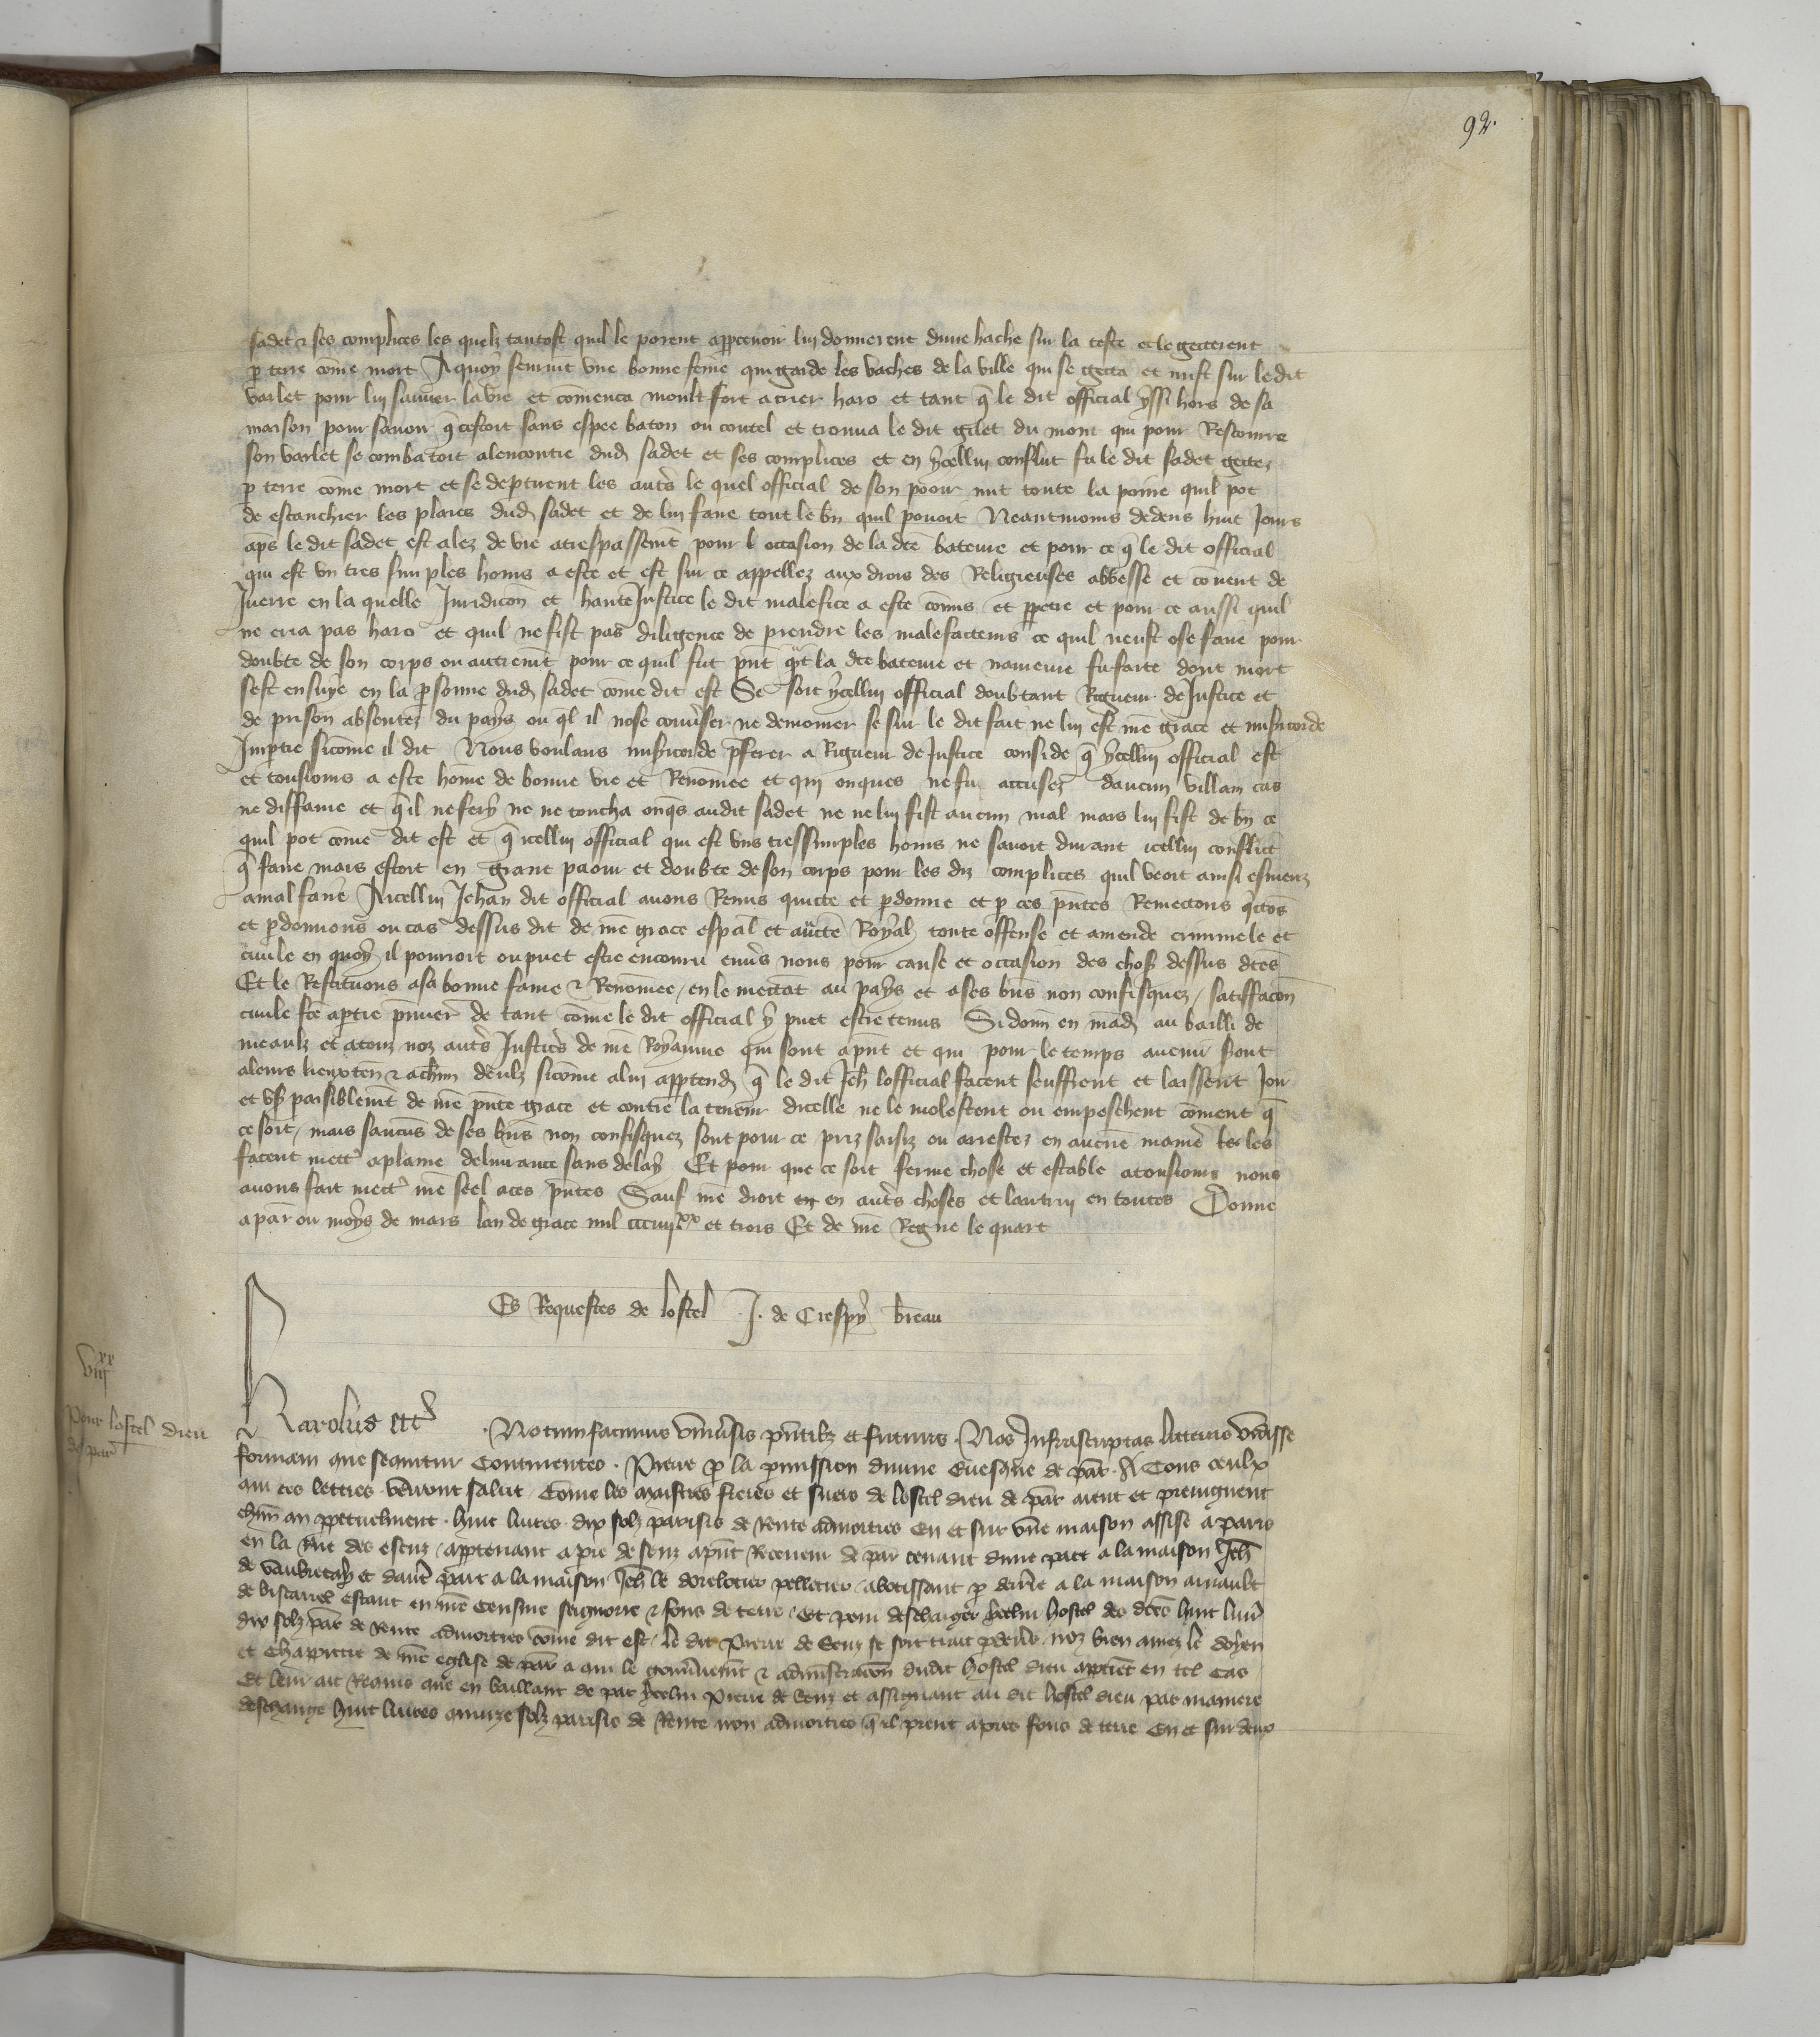 92.
sadet & ses complices les quelz tantost quil le porent appcevoir lui donnerent dune hache sur la teste et le getterent
p terre cōme mort A quoy seurvīt une bonne feme qui garde les vaches de la ville qui se getta et mist sur ledit
varlet pour lui sauver la vie et cōmenca moult fort a crier haro et tant q̄ le dit official yssi hors de sa
maison pour savoir q̄ cestoit sans espee baton ou coutel et trouva le dit gilet du mont qui pour Rescourre
son varlet se combatoit alencontre dud sadet et ses complices et en ycellui conflict fu le dit sadet gettez
p terre cōme mort et se deptirent les autrs le quel official de son pooir mit toute la poine quil pot
de estanchier les plaies dud sadet et de lui faire tout le bn quil pouoit Neantmoins dedens huit Jours
aps le dit sadet est alez de vie a trespassemt pour l occasion de la dcē bateure et pour ce q̄ le dit official
qui est un tres simples homs a este et est sur ce appellez aux drois des Religieuses abbesse et cōvent de
Juerre en la quelle Juridicōn et haute Justice le dit malefice a este cōmis et ppetre et pour ce aussi quil
ne cria pas haro et quil ne fist pas diligence de prendre les malefacteurs ce quil neust ose faire pour
doubte de son corps ou autremt pour ce quil fut pnt qnt la dcē bateure et navreure fu faite dont mort
sest ensuye en la psonne dud sadet cōme dit est Se soit ycellui official doubtant Rigueur de Justice et
de prison absentez du pays ou ql il nose conuser ne demourer se sur le dit fait ne lui est nre grace et misicorde
Impartie sicōme il dit Nous voulans misicorde pferer a Rigueur de Justice conside q̄ ycellui official est
et tousiours a este hōme de bonne vie et Renōmee et qui onques ne fu accusez daucun villain cas
ne diffame et q̄ il ne fery ne ne toucha onqs audit sadet ne ne lui fist aucun mal mais lui fist de bn ce
quil pot cōme dit est et q̄ icellui official qui est uns tressimples homs ne savoit durant icellui conflict
q̄ faire mais estoit en grant paour et doubte de son corps pour les diz complices quil veoit ainsi esmeuz
a mal faire A icellui Jehan dit official avons Remis quicte et pdonne et p ces pntes Remettons qctōs
et pdonnons ou cas dessus dit de nre grace espāl et auctē Royal toute offense et amende criminele et
civile en quoy il pourroit ou puet estre encouru envs nous pour cause et occasion des chos dessus dces
Et le Restituons a sa bonne fame & Renōmee / en le mettāt au pays et a ses bns non confisquez / satiffacōn
civile fcē a ptie pmier de tant cōme le dit official y puet estre tenus Si donn en mād au bailli de
meaulx et a touz noz autrs Justicrs de nre Royaume qui sont a pnt et qui pour le temps avenir seront
a leurs lieuxten & a chun deulx sicōme a lui apptend q̄ le dit Jeh lofficial facent seuffrent et laissent Joir
et us paisiblemt de nre pnte grace et contre la teneur dicelle ne le molestent ou empeschent cōment q̄
ce soit / mais saucuns de ses bns non confisquez sont pour ce priz saisiz ou arrestez en aucune maniere les
facent mett a plaine delivrance sans delay Et pour que ce soit ferme chose et estable a tousiours nous
avons fait mett nre seel a ces pntes Sauf nre droit en autrs choses et lautrui en toutes Donne
a par ou moys de mars lan de grace mil ccciiii xx et trois Et de nre Regne le quart
Es Requestes de lostel J. de Crespy breau
viii xx
Pour lostel dieu
de par
Karolus etc Notum facimus universis pntibz et futuris Nos Infrascriptas litteras vidisse
formam que sequitur Continentes . Pierre p la pmission divine Evesque de par . A Tous ceulx
qui ces lettres verront salut Cōme les maistres freres et suers de lostel dieu de par aient et preingnent
chun an ppetuelment . huit livres dix solz parisis de Rente admorties en et sur une maison assise a paris
en la Rue des escriz / apptenant a pre de senz a pnt Receveur de par tenant dune part a la maison Jeh
de vaubrecay et dautr part a la maison Jeh le dorelotier pelletier / abotissant p derr a la maison arnault
de biscarrel estant en nre Censive seigneurie & fons de terre / Et pour deschargr ycelui hostel des dces huit livr
dix solz par de Rente admorties cōme dit est / le dit Pierre de Senz se soit trait p devers noz bien amez le doyen
et Chapitre de nre eglise de par a qui le gouvnemt & administracōn dudit hostel dieu apptiēt en tel cas
Et leur ait Requis que en baillant de par ycelui Pierre de Senz et assignant au dit hostel dieu par maniere
deschange huit livres quinze solz parisis de Rente non admorties q̄ il prent apres fons de terre En et sur deux